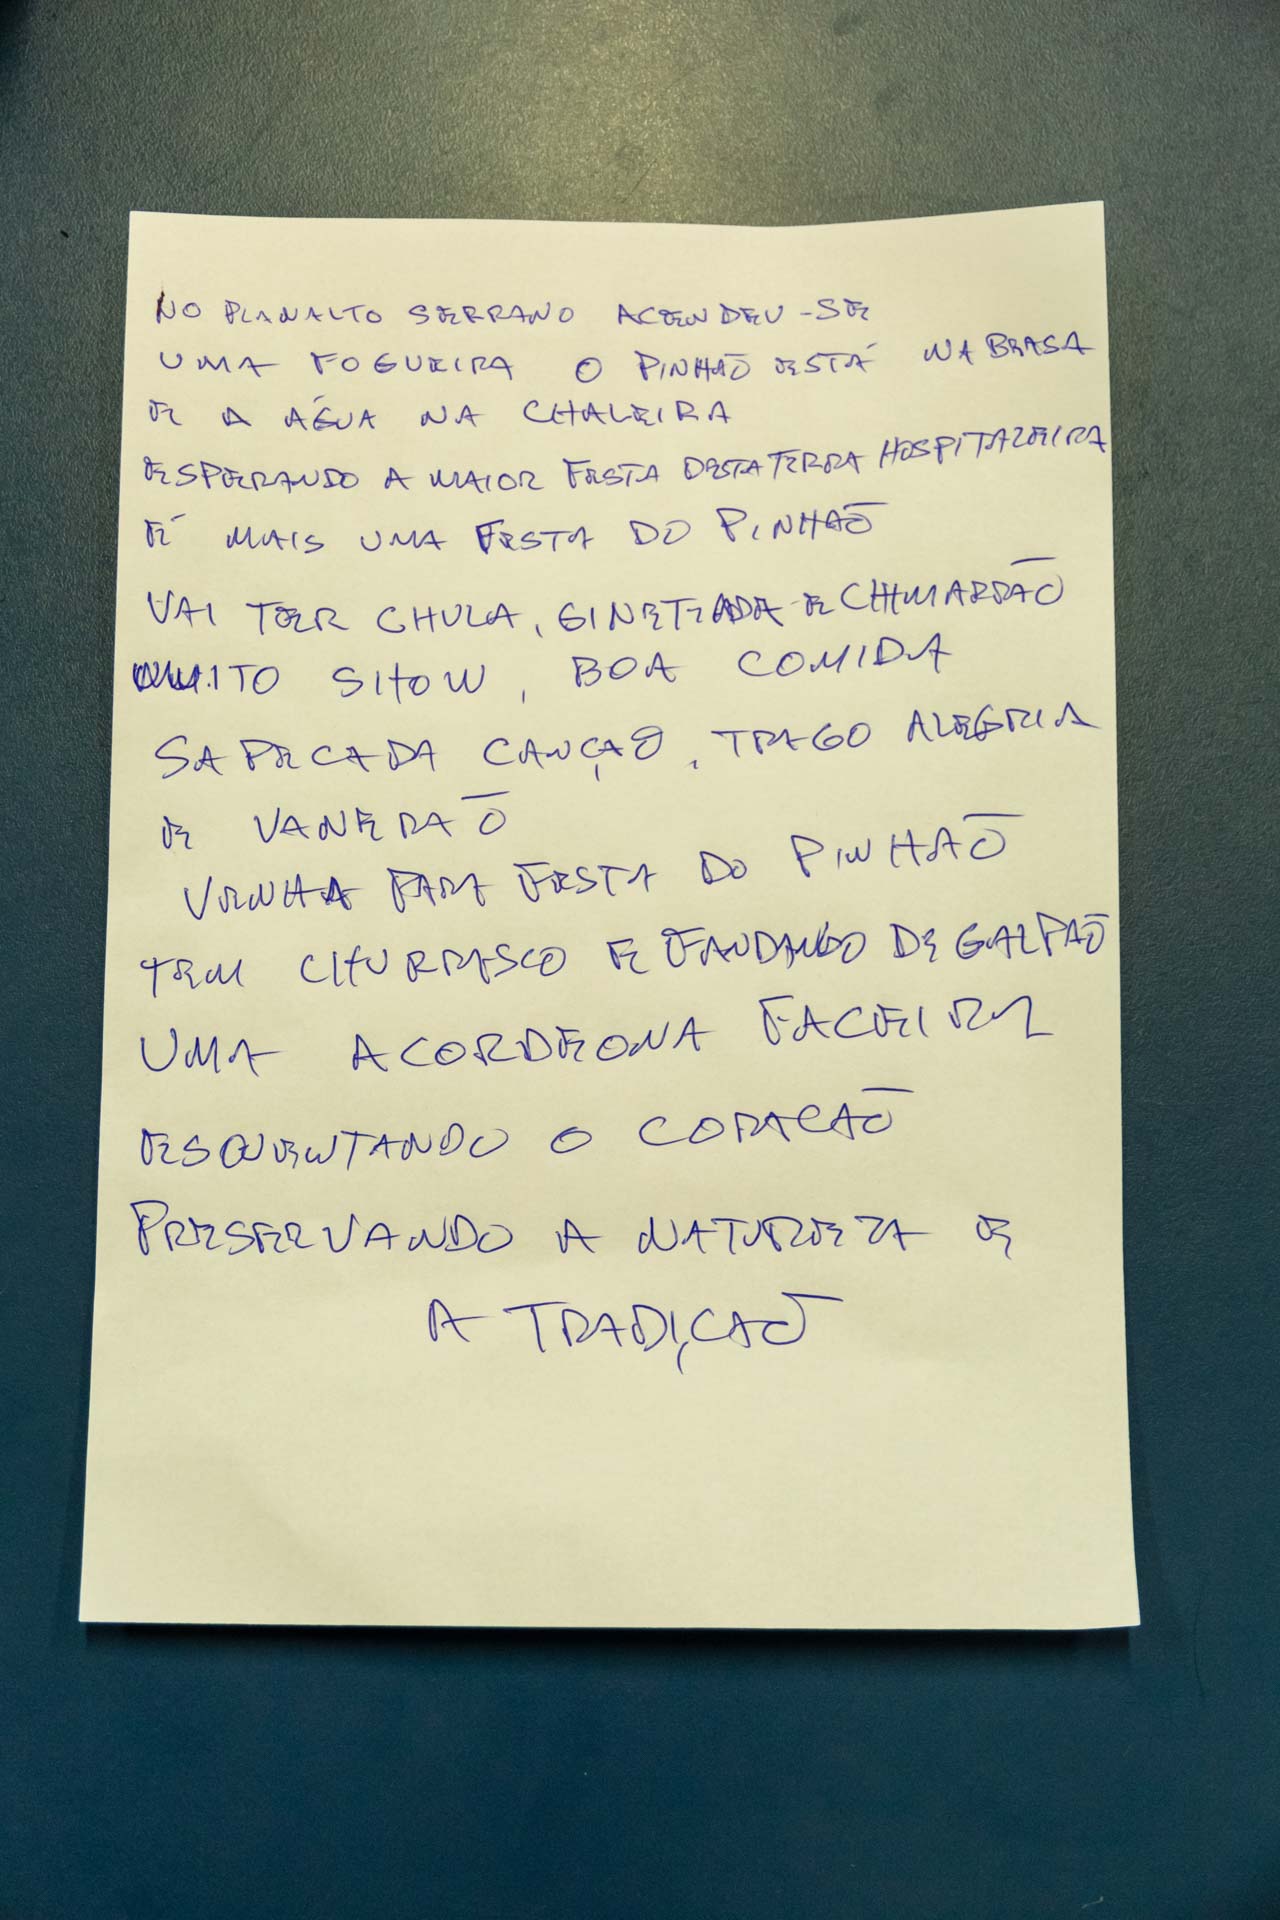 NO PLANALTO SERRANO ACENDEU-SE
UMA FOGUEIRA O PINHÃO ESTÁ NA BRASA
E A ÁGUA NA CHALEIRA
ESPERANDO A MAIOR FESTA DESTA TERRA HOSPITALEIRA
É MAIS UMA FESTA DO PINHÃO
VAI TER CHULA, GINETEADA E CHIMARRÃO
MUITO SHOW, BOA COMIDA
SAPECADA CANÇÃO, TRAGO ALEGRIA
E VANERÃO
VENHA PARA FESTA DO PINHÃO
TEM CHURRASCO E FANDANGO DE GALPÃO
UMA ACORDEONA FACEIRA
ESQUENTANDO O CORACÃO
PRESERVANDO A NATUREZA E
A TRADIÇÃO